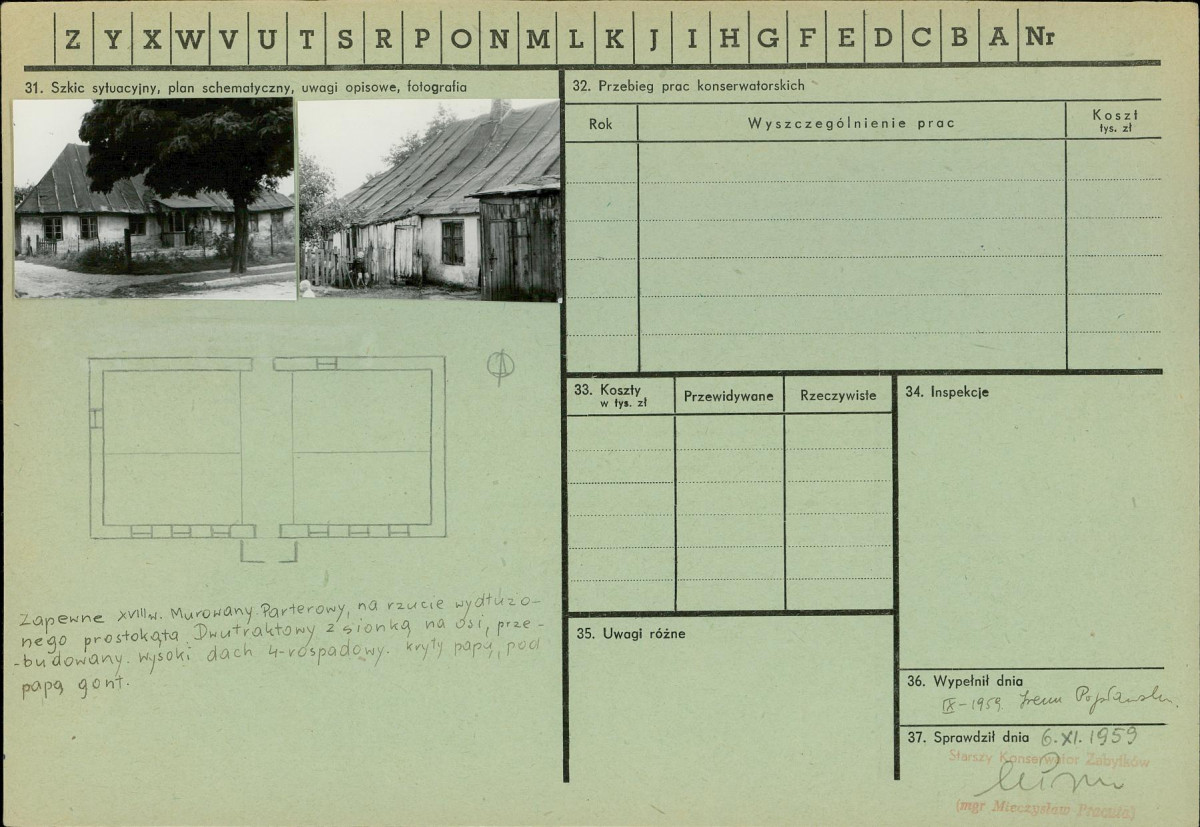 Z Y X W V U T S R P O N M L K J I H G F E D C B A Nr
31. Szkic sytuacyjny, plan schematyczny, uwagi opisowe, fotografia
Zapewne XVIII w. Murowany. Parterowy, na rzucie wydłużo-
nego prostokąta. Dwutraktowy z sionką na osi, prze-
-budowany. Wysoki dach 4-rospadowy. kryty papą, pod
papą gont.
32. Przebieg prac konserwatorskich
Rok
Wyszczególnienie prac
Koszt
tys. zł
33. Koszty
w tys. zł
Przewidywane
Rzeczywiste
34. Inspekcje
35. Uwagi różne
36. Wypełnił dnia
IX-1959 Irena
37. Sprawdził dnia 6.XI.1959
Starszy Konserwator Zabytków
(mgr Mieczysław